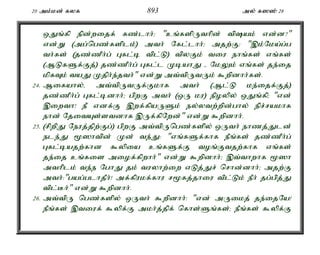 20 அம்மன் கலக 893 அல் கஸஸ் 28
ஒதுங்கி நின்றதைக் கண்டார்; "உங்களிருவரின் விஷயம் என்ன?"
என்று (அப்பெண்களிடம்) அவர் கேட்டார்; அதற்கு: "இம்மேய்ப்ப
வர்கள் (தண்ணீர்ப் புகட்டி விட்டு) விலகும் வரை நாங்கள் எங்கள்
(ஆடுகளுக்குத்) தண்ணீர்ப் புகட்ட முடியாது - மேலும் எங்கள் தந்தை
மிகவும் வயது முதிர்ந்தவர்" என்று அவ்விருவரும் கூறினார்கள்.
24. ஆகையால், அவ்விருவருக்குமாக அவர் (ஆட்டு மந்தைக்குத்)
தண்ணீர்ப் புகட்டினார்; பிறகு அவர் (ஒரு மர) நிழலில் ஒதுங்கி: "என்
இறைவா! நீ எனக்கு இறக்கியருளும் நல்லவற்றின்பால் நிச்சயமாக
நான் தேவையுள்ளவனாக இருக்கிறேன்" என்று கூறினார்.
25. (சிறிது நேரத்திற்குப்) பிறகு அவ்விருபெண்களில் ஒருவர் நாணத்துடன்
நடந்து மூஸாவின் முன் வந்து: "எங்களுக்காக நீங்கள் தண்ணீர்ப்
புகட்டியதற்கான கூலியை உங்களுக்கு வழங்குவதற்காக எங்கள்
தந்தை உங்களை அழைக்கிறார்" என்று கூறினார்; இவ்வாறாக மூஸா
அவரிடம் வந்த போது தம் வரலாற்றை எடுத்துச் சொன்னார்; அதற்கு
அவர்:"பயப்படாதீர்! அக்கிரமக்கார சமூகத்தாரை விட்டும் நீர் தப்பித்து
விட்டீர்" என்று கூறினார்.
26. அவ்விரு பெண்களில் ஒருவர் கூறினார்: "என் அருமைத் தந்தையே!
நீங்கள் இவரைக் கூலிக்கு அமர்த்திக் கொள்ளுங்கள்; நீங்கள் கூலிக்கு